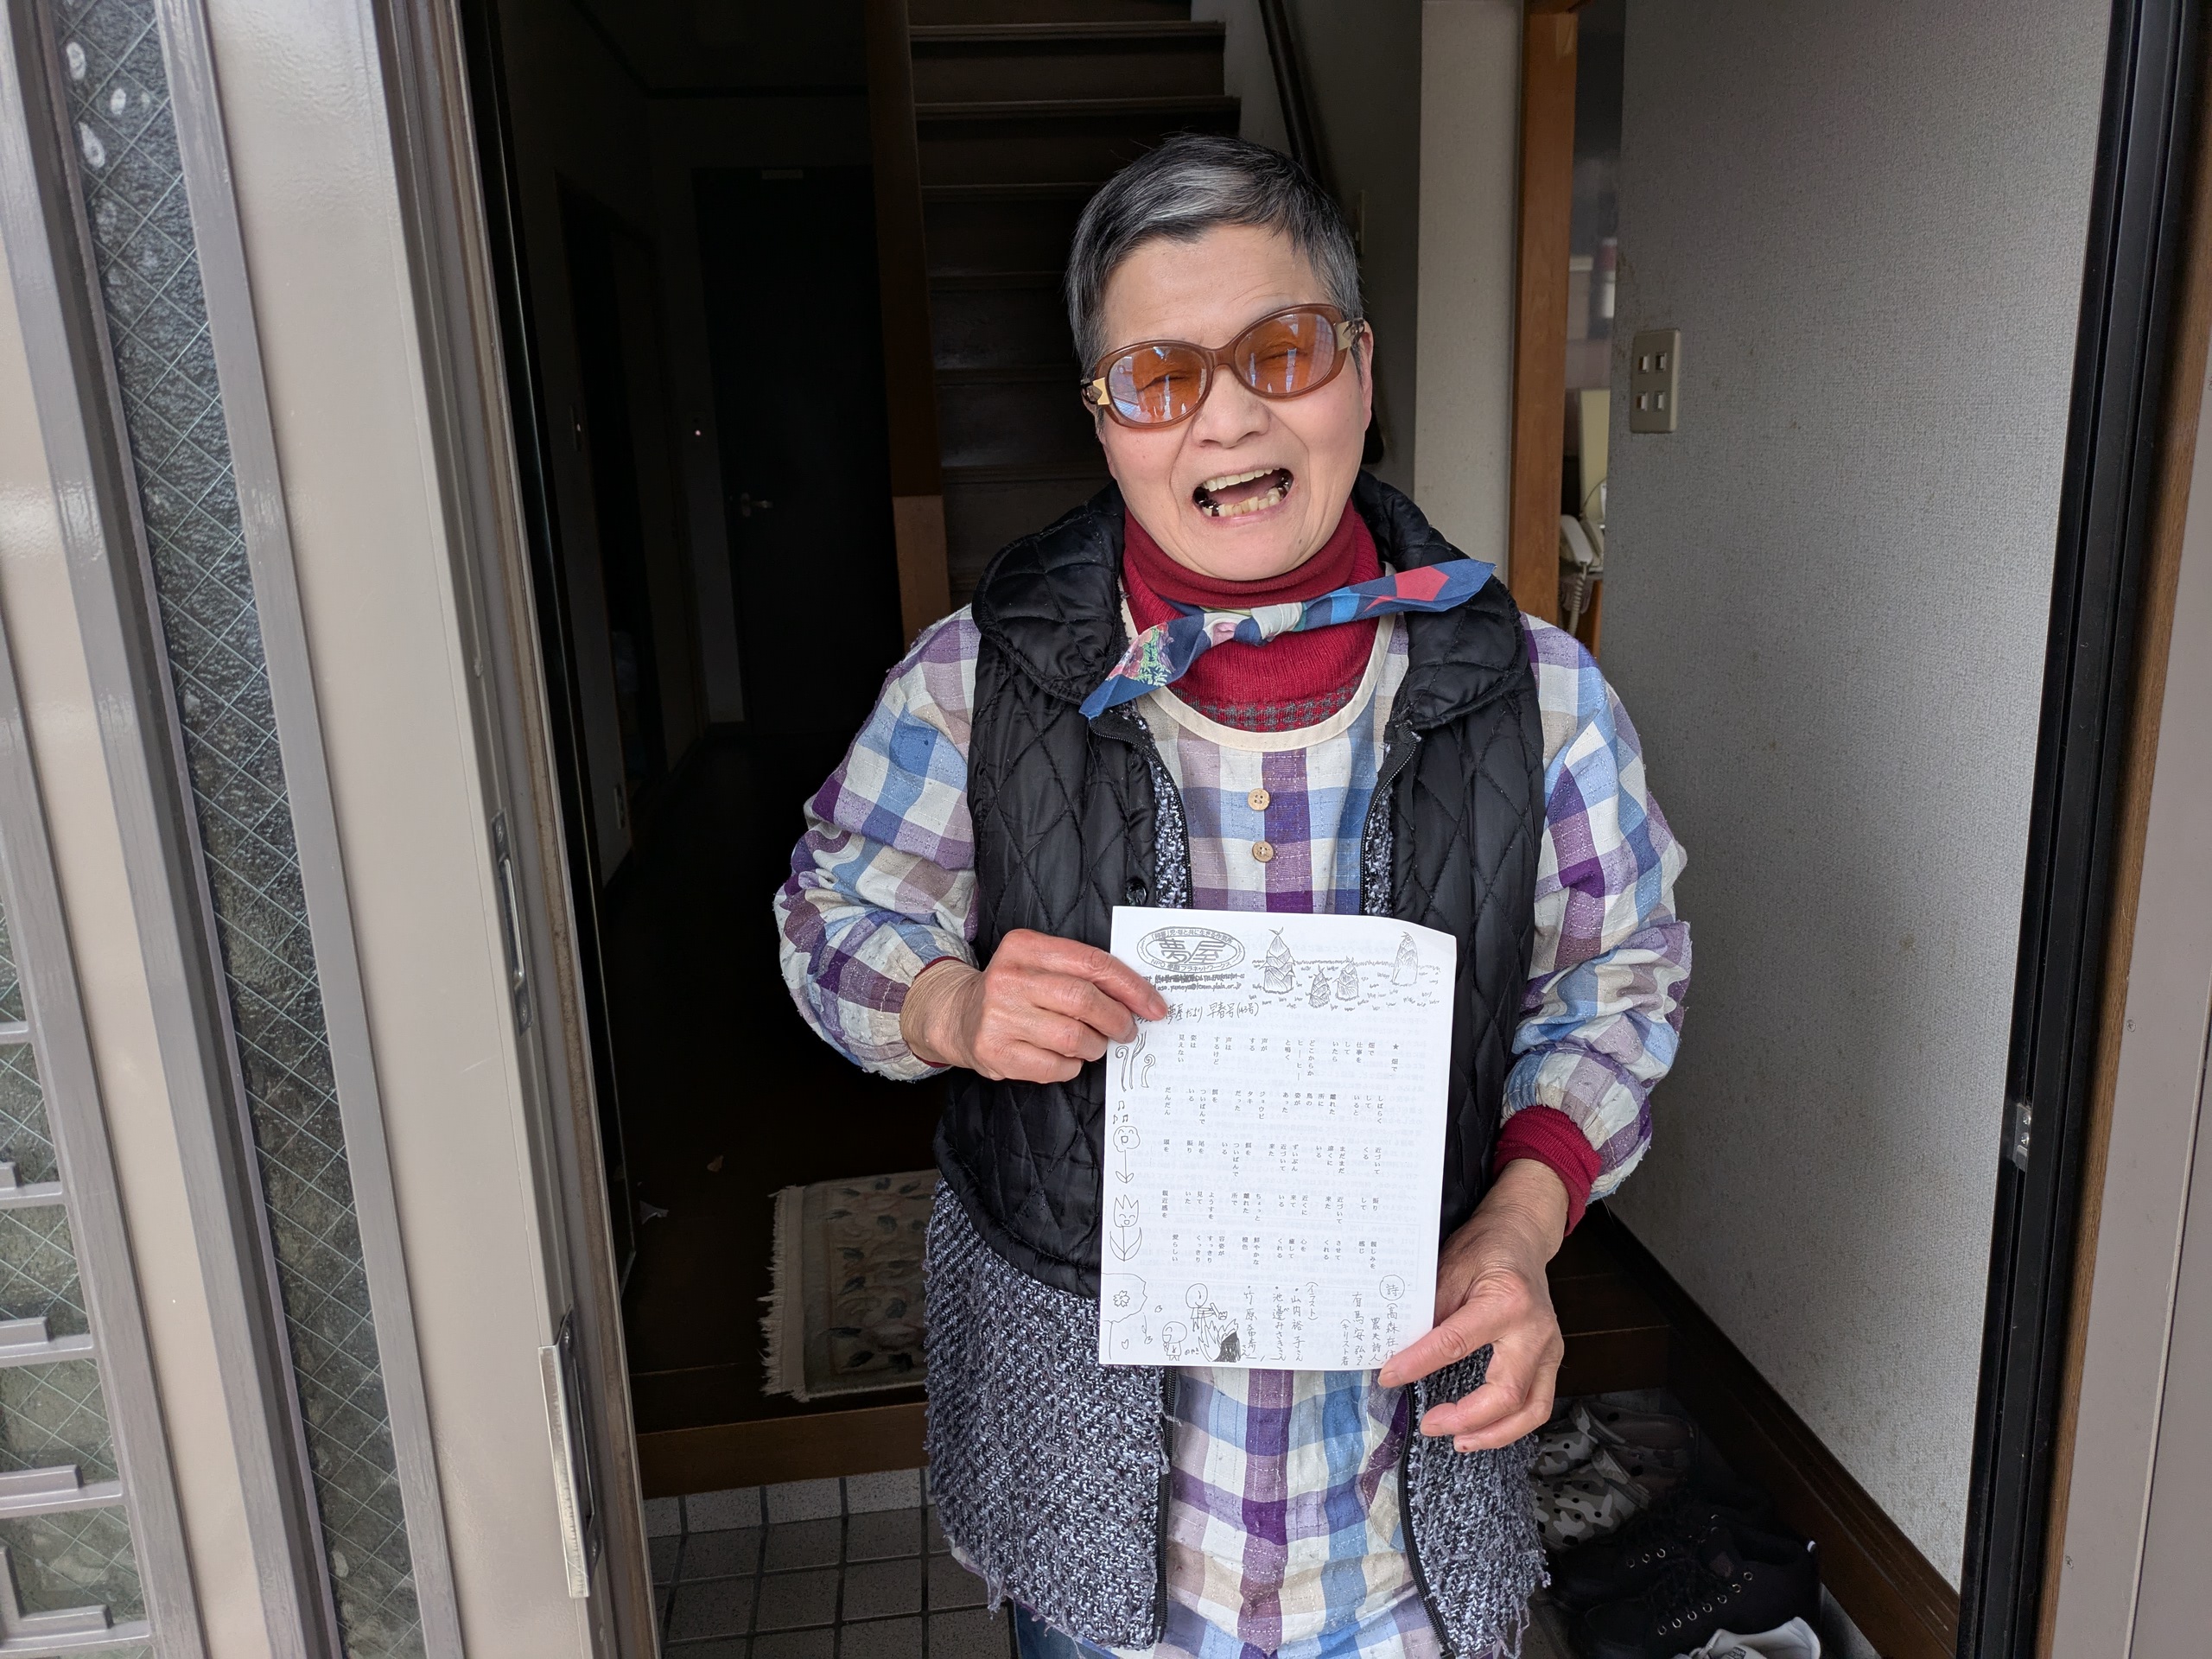 夢屋
夢屋だより 早春号
★ 畑で
畑で
仕事を
して
いたら
どこからか
ヒーーヒーー
と鳴く
声が
する
声は
するけど
姿は
見えない
しばらく
して
いると
離れた
所に
鳥の
姿が
あった
ジョウビ
タキ
だった
餌を
ついばんで
いる
だんだん
近づいて
くる
まだまだ
遠くに
いる
ずいぶん
近づいて
来た
餌を
ついばんで
いる
尾を
振り
頭を
振り
して
近づいて
来た
近くに
来て
いる
ちょっと
離れた
所で
ようすを
見て
いた
親近感を
親しみを
感じ
させて
くれる
心を
癒して
くれる
鮮やかな
橙色
容姿が
すっきり
くっきり
愛らしい
詩
(高森在住
農夫詩人
有馬安弘さん
(キリスト者
(イラスト)
・山内裕子さん
・池邊みさきさん